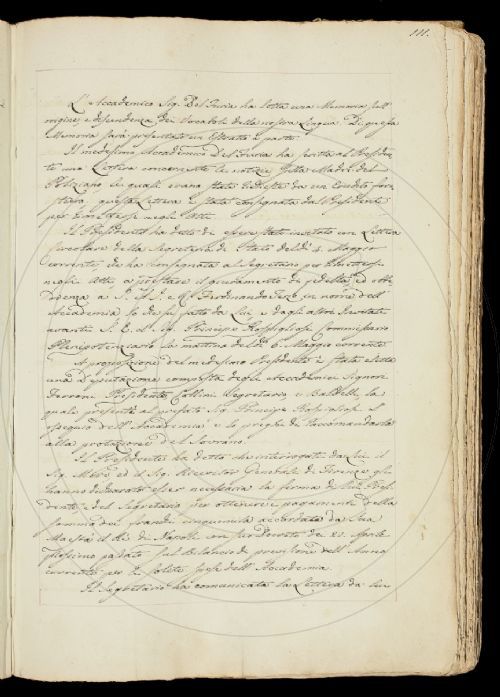 111.
L'Accademico Sig. Del Furia ha letto una Memoria sull'
origine, e dependenza dei Vocaboli della nostra Lingua. Di questa
Memoria sarà presentato un Estratto a parte.
Il medesimo Accademico Del Furia ha scritta al Presiden-
te una Lettera concernente le notizie della Madre del
Poliziano le quali erano state richieste da un Erudito fore-
stiero, questa Lettera è stata consegnata dal Presidente
per inserirsi negli Atti.
Il Presidente ha detto di essere stato invitato con Lettera
Circolare della Segreteria di Stato del dì 4. Maggio
corrente, che ha consegnata al Segretario per inserirsi
negli Atti a prestare il giuramento di fedeltà, ed obbe
dienza a S. A. I. e R. Ferdinando Terzo in nome dell'
Accademia lo che fu fatto da Lui, e dagli altri Invitati
avanti S. E. il Sig. Principe Rospigliosi Commissario
Plenipotenziario la mattina del dì 6. Maggio corrente.
A proposizione del medesimo Presidente è stata eletta
una Deputazione composta degli Accademici Signori
Ferroni Presidente, Collini Segretario, e Baldelli, la
quale presenti al prefato Sig. Principe Rospigliosi l'
ossequio dell'Accademia, e lo preghi di raccomandarla
alla protezione del Sovrano.
Il Presidente ha detto che interrogati da Lui il
Sig. Maire ed il Sig. Ricevitor Generale di Firenze gli
hanno dichiarato esser necessaria la firma di Lui Presi-
dente, e del Segretario per ottenere il pagamento della
somma di franchi cinquemila accordata da Sua
Maestà il Re di Napoli con suo Decreto de' 21. Aprile
prossimo passato sul Bilancio di previsione dell'Anno
corrente per le solite spese dell'Accademia.
Il Segretario ha comunicata la Lettera da lui